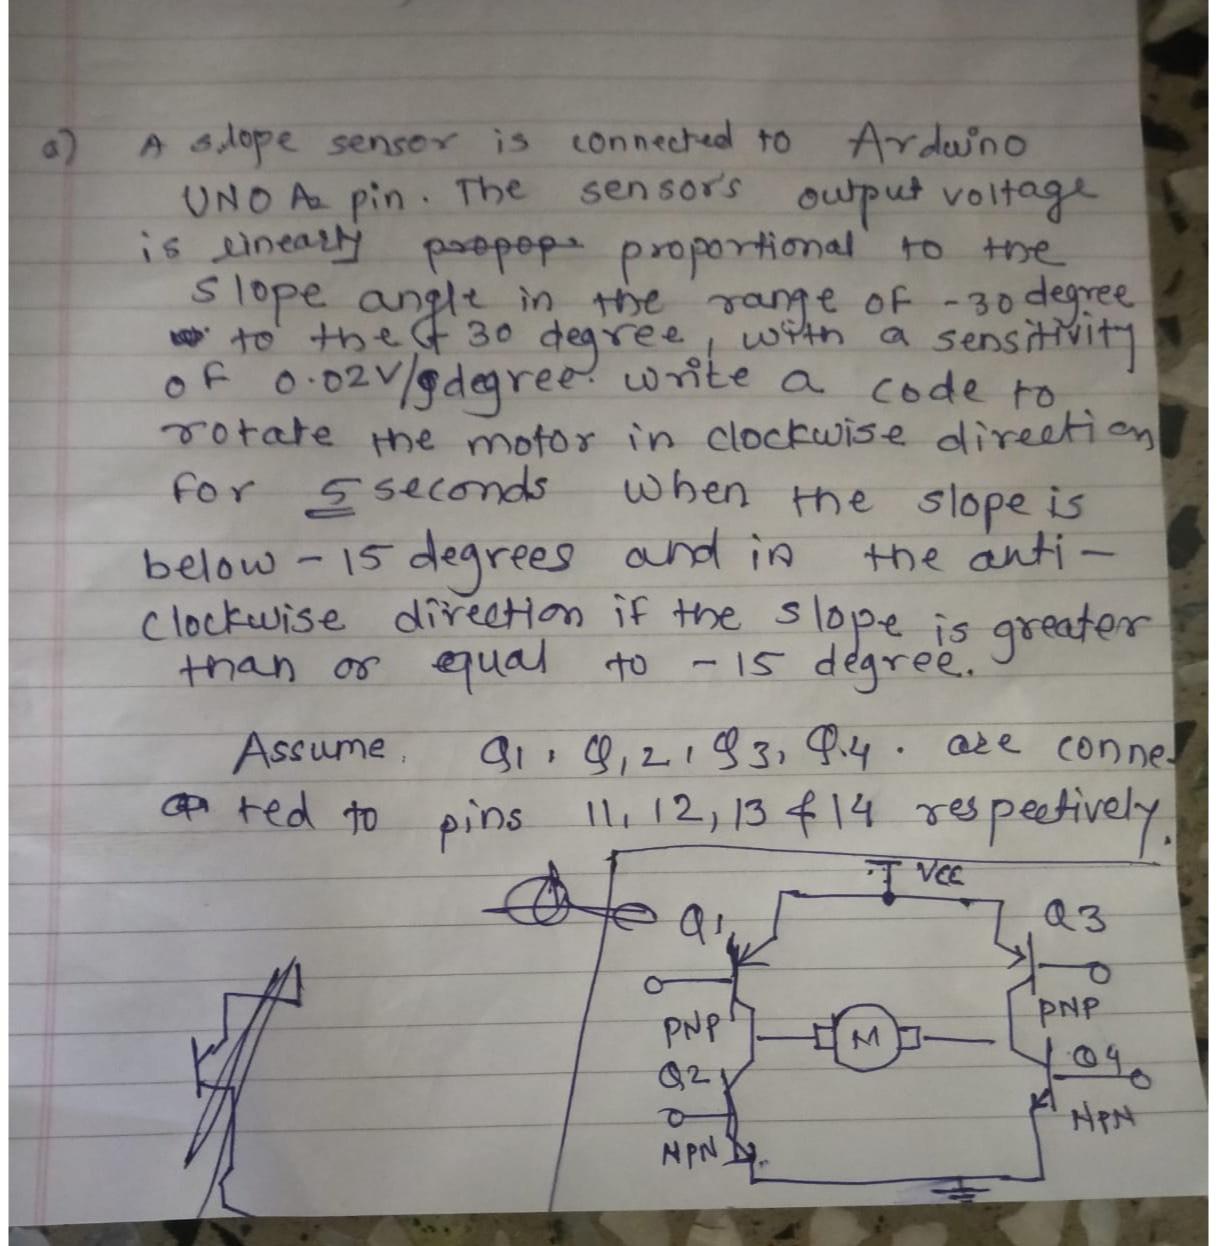 a) A slope sensor is connected to Arduino
UNO A2 pin. The sensors output voltage
is linearly propop proportional to the
slope angle in the range of -30 degree
to the + 30 degree, with a sensitivity
of 0.02V/gdegree. write a code to
rotate the motor in clockwise direction
for 5 seconds when the slope is
below -15 degrees and in the anti-
clockwise direction if the slope is greater
than or equal to -15 degree.
Assume. Q1, Q,2, Q3, Q.4. are conne-
cted to pins 11, 12, 13 & 14 respectively.
VCC
Q1
Q3
PNP
M
PNP
Q2
Q4
NPN
NPN